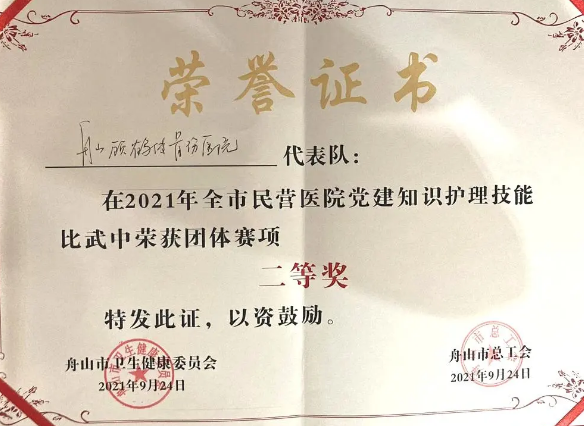 荣誉证书
舟山顾鹤林骨伤医院 代表队：
在2021年全市民营医院党建知识护理技能
比武中荣获团体赛项
二等奖
特发此证，以资鼓励。
舟山市卫生健康委员会
2021年9月24日
舟山市总工会
2021年9月24日